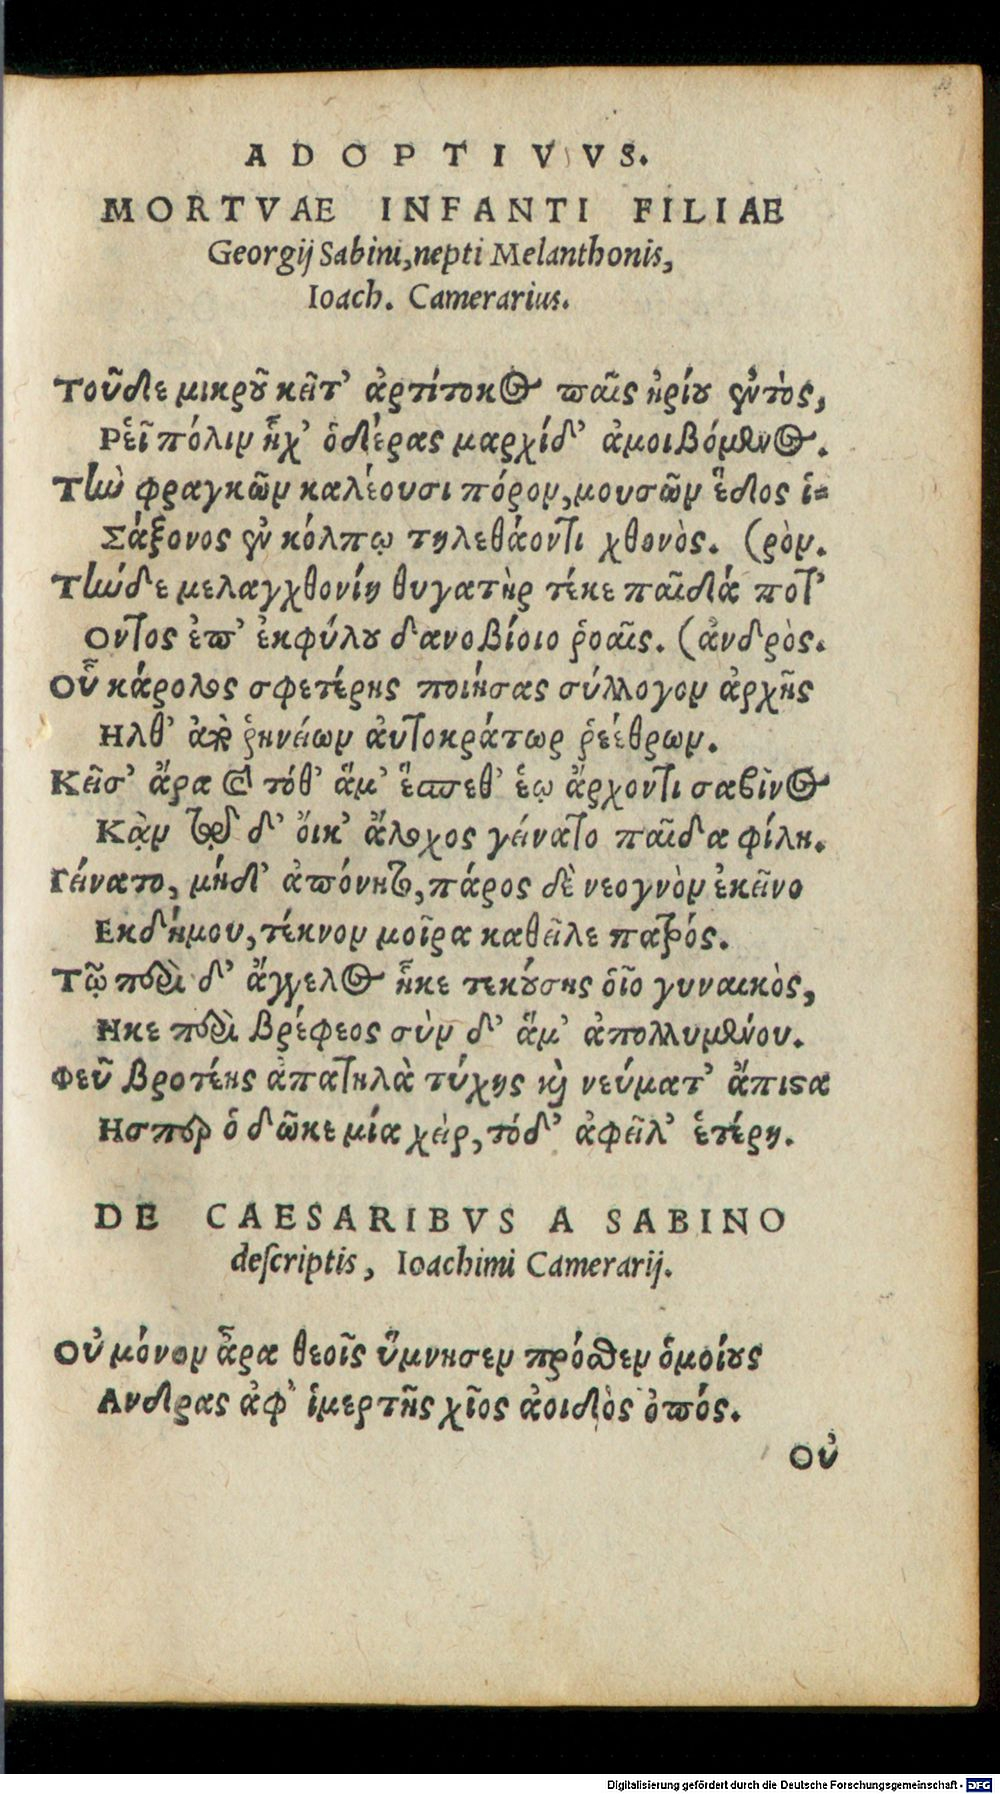 ADOPTIVVS.
MORTVAE INFANTI FILIAE
Georgij Sabini, nepti Melanthonis,
Ioach. Camerarius.
Τοῦδε μικροῦ κεῖτ' ἀρτίτοκος παῖς ἠρίου ἐντὸς,
Ρεῖ πόλιν ᾗχ' ὁ δέρας μαρχίδ' ἀμοιβόμενος.
Τὼ φραγκῶν καλέουσι πόρον, μουσῶν ἕδος ἱ=
Σάξονος ἐν κόλπῳ τηλεθάοντι χθονὸς. (ρὸν.
Τήνδε μελαγχθονίη θυγατὴρ τέκε παῖδά ποτ'
Οντος ἐπ' ἐκφύλου δανοβίοιο ῥοαῖς. (ἀνδρὸς.
Οὗ κάρολος σφετέρης ποιήσας σύλλογον ἀρχῆς
Ηλθ' ἀπὸ ῥηνείων αὐτοκράτωρ ῥεέθρων.
Κεῖσ' ἄρα καὶ τόθ' ἅμ' ἕσπεθ' ἑῷ ἄρχοντι σαβῖνος
Κᾂν δ' ὄικ' ἄλοχος γείνατο παῖδα φίλη.
Γείνατο, μήδ' ἀπόνητο, πάρος δὲ νεογνὸν ἐκεῖνο
Εκδήμου, τέκνον μοῖρα καθεῖλε πατρός.
Τῷ περὶ δ' ἄγγελος ἧκε τεκούσης οἷο γυναικὸς,
Ηκε περὶ βρέφεος σὺν δ' ἅμ' ἀπολλυμένου.
Φεῦ βροτέης ἀπατηλὰ τύχης καὶ νεύματ' ἄπιστα
Ησπερ ὁ δῶκε μία χεὶρ, τόδ' ἀφεῖλ' ἑτέρη.
DE CAESARIBVS A SABINO
descriptis, Ioachimi Camerarij.
Οὐ μόνον ἆρα θεοῖς ὕμνησεν πρόσθεν ὁμοίους
Ανδρας ἀφ' ἱμερτῆς χῖος ἀοιδὸς ὀπός.
Οὐ
Digitalisierung gefördert durch die Deutsche Forschungsgemeinschaft - DFG